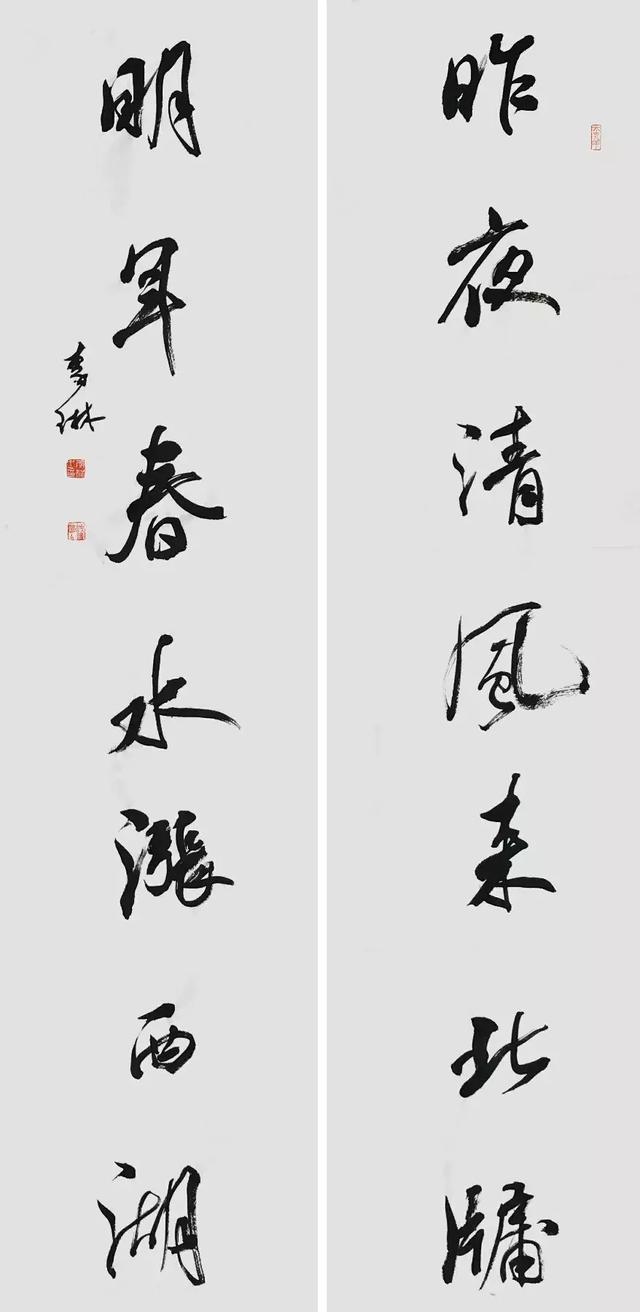 昨夜清風来北牖
明年春水漲西湖